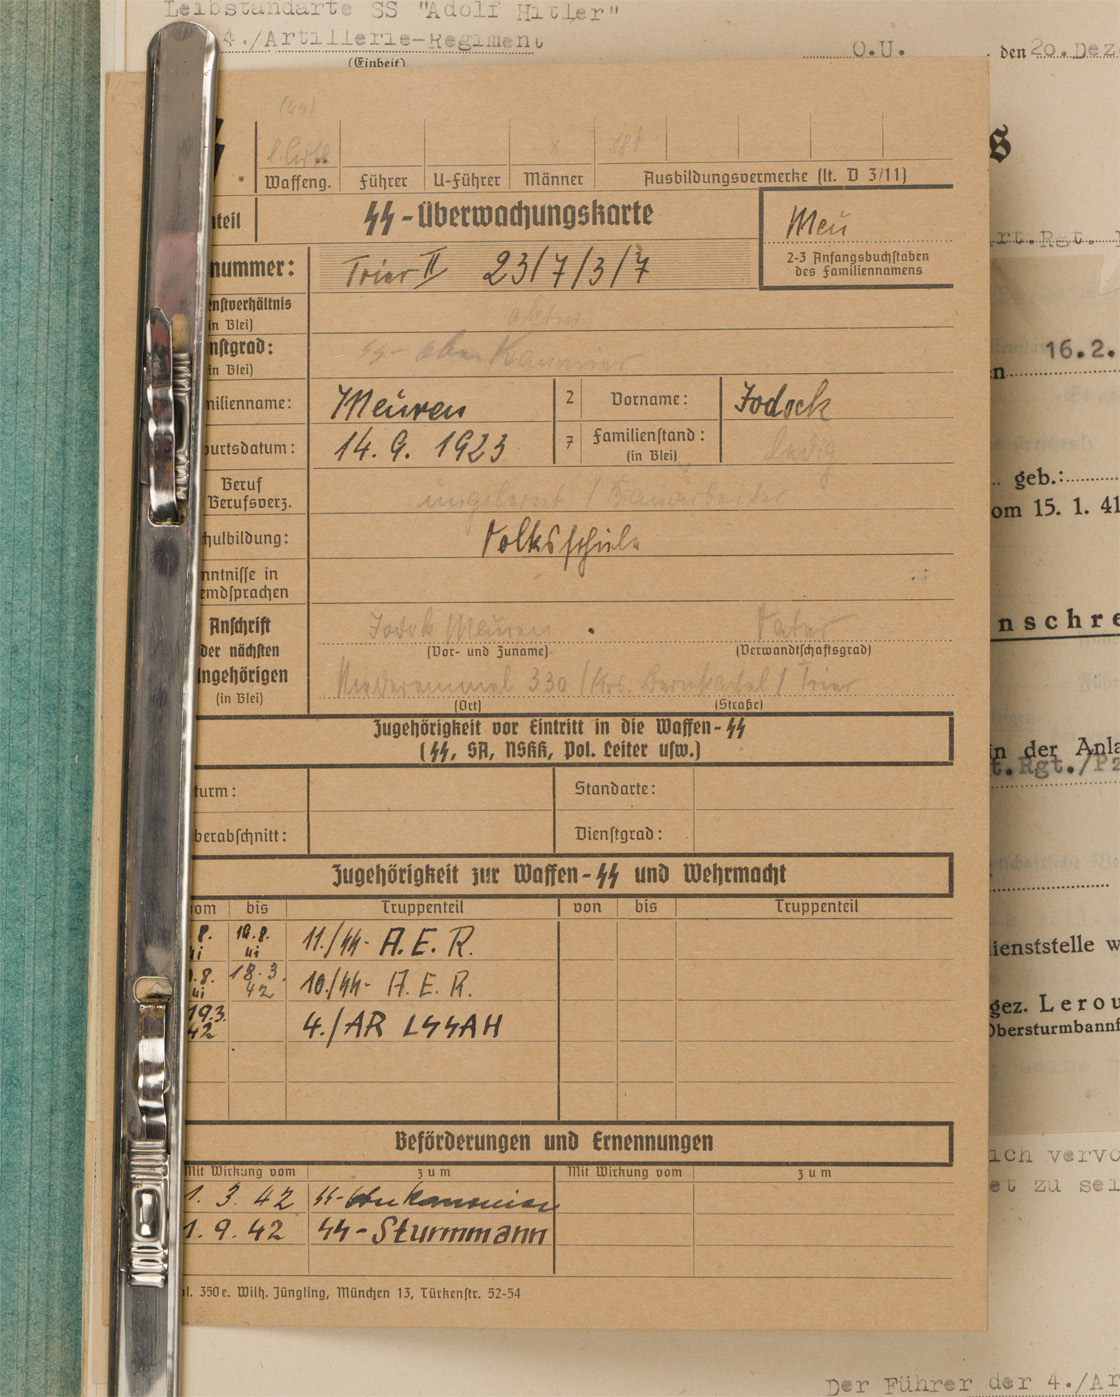 Leibstandarte SS "Adolf Hitler"
4./Artillerie-Regiment
(Einheit)
O.U. den 20. Dez
s
(49)
181
Waffeng. Führer U-Führer Männer Ausbildungsvermerke (lt. D 3/11)
teil
SS-Überwachungskarte
Meu
2-3 Anfangsbuchstaben
des Familiennamens
rt.Rgt.
nummer: Trier II 23/7/3/7
enstverhältnis
in Blei) aktiv
nstgrad: SS-Oberkanonier
in Blei)
16.2.
n
milienname: Meuren 2 Vorname: Jodock
burtsdatum: 14.9.1923 7 Familienstand: ledig
(in Blei)
Beruf
Berufsverz. ungelernt / Bauarbeiter
geb.:
om 15. 1. 41
hulbildung: Volksschule
nntnisse in
emdsprachen
Anschrift
der nächsten
Angehörigen
(in Blei)
Jodok Meuren Vater
(Vor- und Zuname) (Verwandtschaftsgrad)
Niederemmel 330 / Krs. Bernkastel / Trier
(Ort) (Straße)
nschre
Zugehörigkeit vor Eintritt in die Waffen-SS
(SS, SA, NSKK, Pol. Leiter usw.)
in der Anla
t.Rgt./Pz
turm: Standarte:
berabschnitt: Dienstgrad:
Zugehörigkeit zur Waffen-SS und Wehrmacht
om bis Truppenteil von bis Truppenteil
8. 41 10.8. 41 11./SS-A.E.R.
.8. 41 18.3. 42 10/SS-A.E.R.
19.3. 42 4./AR LSSAH
ienststelle w
gez. Lerou
Obersturmbannf
Beförderungen und Ernennungen
Mit Wirkung vom zum Mit Wirkung vom zum
1.3.42 SS-Oberkanonier
1.9.42 SS-Sturmmann
ich vervo
et zu sel
l. 350e. Wilh. Jüngling, München 13, Türkenstr. 52-54
Der Führer der 4./Ar